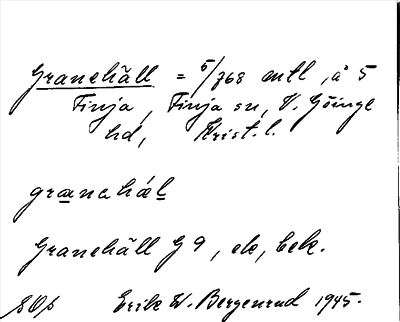 Granehäll = 5/768 mtl, å 5
Finja, Finja sn, V. Göinge
hd, Krist. l.
grænahæl
Granehäll G 9, eb, bek.
Erik W. Bergenrud 1945.